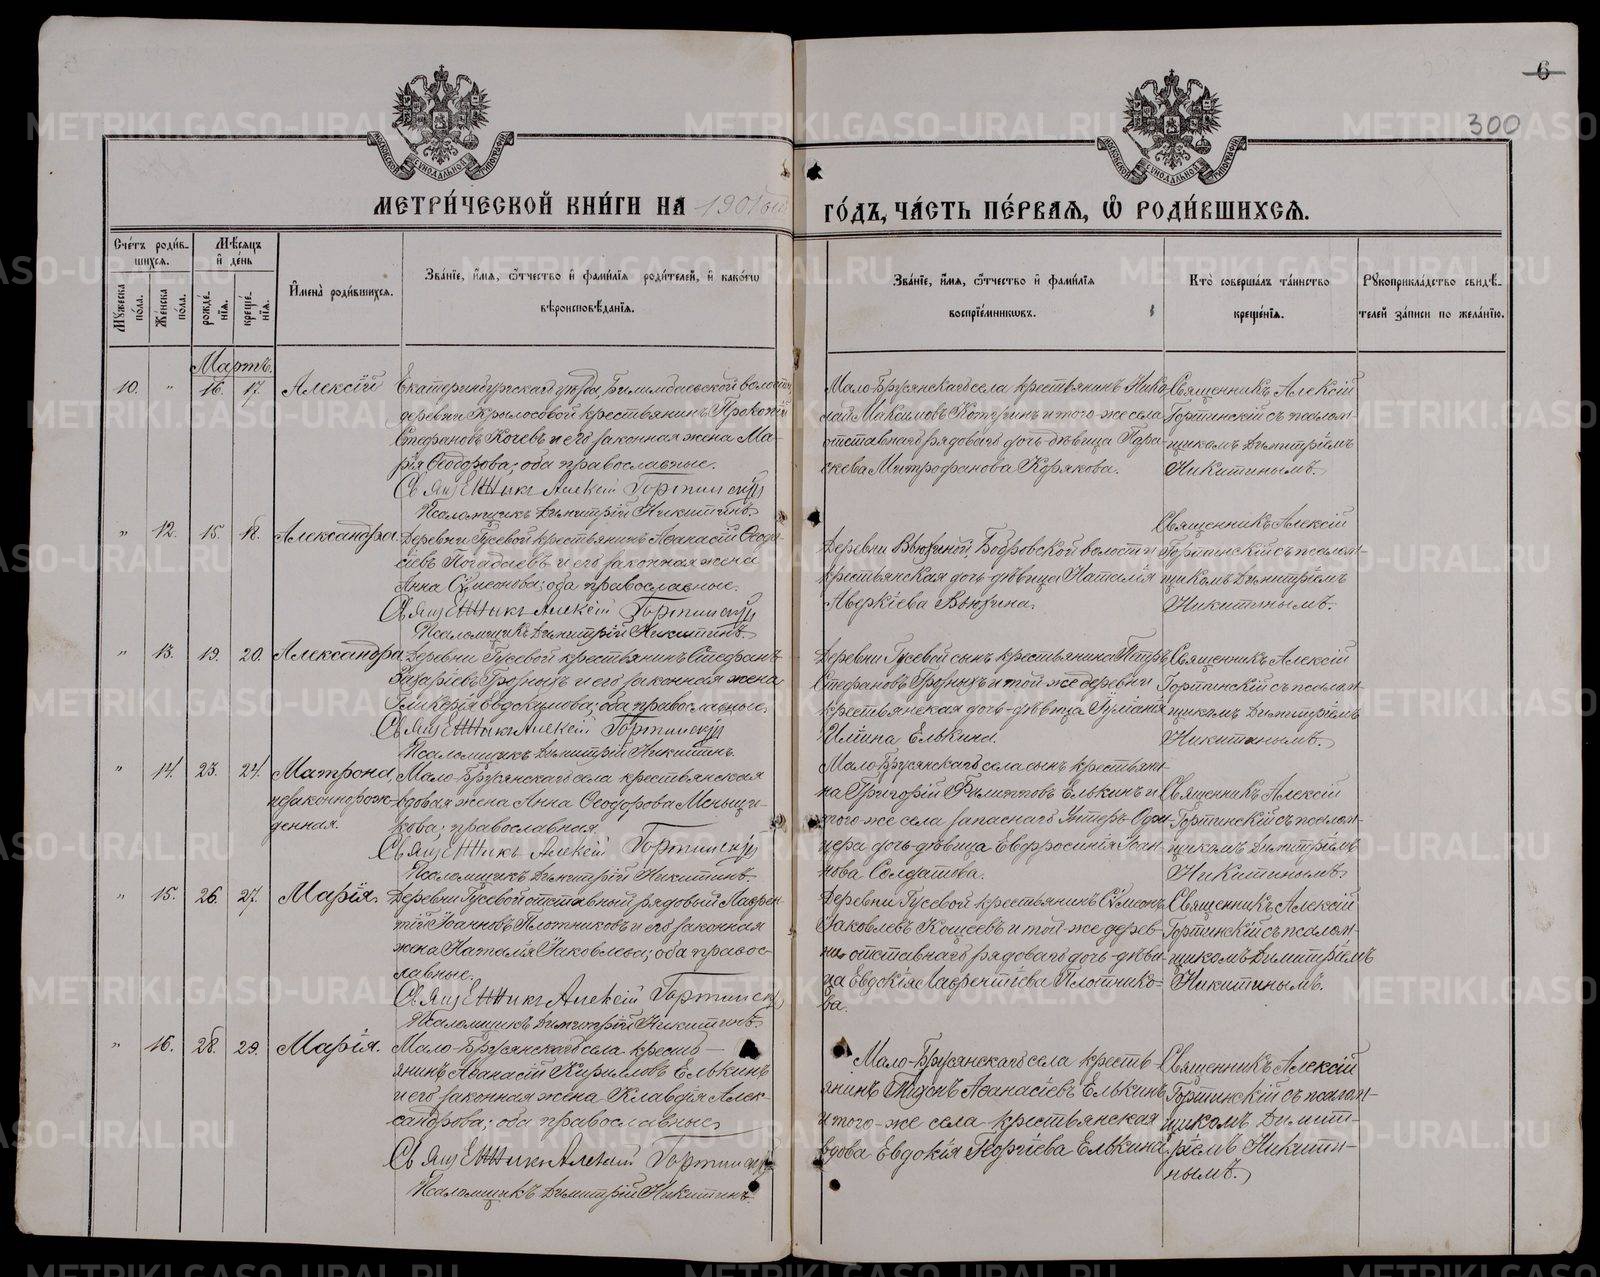 6
300
МЕТРИ́ЧЕСКОЙ КНИ́ГИ НА 1901 ый
ГО́ДЪ, ЧА́СТЬ ПЕ́РВАЯ, Ѽ РОДИ́ВШИХСЯ.
Сче́тъ роди́в-
шихся.
Му́жеска по́ла.
Же́нска по́ла.
Мѣ́сяцъ
и҆ де́нь
рожде́-
нїя.
креще́-
нїя.
И҆мена̀ роди́вшихся.
Зва́нїе, и҆́мя, ѻ҆́тчество и҆ фами́лїя роди́телей, и҆ како́гѡ
вѣроисповѣ́данїя.
Зва́нїе, и҆́мя, ѻ҆́тчество и҆ фами́лїя
воспрїе́мникѡвъ.
Кто̀ соверша́лъ та́инство
креще́нїя.
Рꙋкоприкла́дство свидѣ́-
телей за́писи по жела́нїю.
Мартъ.
10. " 16. 17. Алексій
Екатеринбургскаго уѣзда, Билимбаевской волости
деревни Крылосовой крестьянинъ Прокопій
Стефановъ Кочевъ и его законная жена Ма-
рія Ѳеодорова; оба православные.
Священникъ Алексій Гортинскій
Псаломщикъ Димитрій Никитинъ.
Мало-Брусянскаго села крестьянинъ Нико-
лай Максимовъ и того-же села
отставнаго рядоваго дочь-дѣвица Пара-
скева Митрофанова Корякова.
Священникъ Алексій
Гортинскій съ псалом-
щикомъ Димитріемъ
Никитинымъ.
" 12. 15. 18. Александра.
Деревни Гусевой крестьянинъ Аѳанасій Ѳеодо-
сіевъ и его законная жена
Анна Сѷмеонова; оба православные.
Священникъ Алексій Гортинскій
Псаломщикъ Димитрій Никитинъ.
Деревни Вьюхиной Бобровской волости
крестьянская дочь-дѣвица Наталія
Аверкіева Вьюхина.
Священникъ Алексій
Гортинскій съ псалом-
щикомъ Димитріемъ
Никитинымъ.
" 13. 19. 20. Александра
Деревни Гусевой крестьянинъ Стефанъ
Захаріевъ Грозныхъ и его законная жена
Гликерія Евдокимова; оба православные.
Священникъ Алексій Гортинскій
Псаломщикъ Димитрій Никитинъ.
Деревни Гусевой сынъ крестьянина Петръ
Стефановъ Грозныхъ и той же деревни
крестьянская дочь-дѣвица Іуліанія
Иліина Елькина.
Священникъ Алексій
Гортинскій съ псалом-
щикомъ Димитріемъ
Никитинымъ.
" 14. 23. 24. Матрона,
незаконнорож-
денная.
Мало-Брусянскаго села крестьянская
вдовая жена Анна Ѳеодорова Меньщи-
кова; православная.
Священникъ Алексій Гортинскій
Псаломщикъ Димитрій Никитинъ.
Мало-Брусянскаго села сынъ крестьяни-
на Григорій Филипповъ Елькинъ и
того-же села запаснаго Унтеръ-Офи-
цера дочь-дѣвица Евфросинія Іоан-
нова Солдатова.
Священникъ Алексій
Гортинскій съ псалом-
щикомъ Димитріемъ
Никитинымъ.
" 15. 26. 27. Марія.
Деревни Гусевой отставный рядовый Лаврен-
тій Іоанновъ Плотниковъ и его законная
жена Наталія Іаковлева; оба правос-
лавные.
Священникъ Алексій Гортинскій
Псаломщикъ Димитрій Никитинъ.
Деревни Гусевой крестьянинъ Сѷмеонъ
Іаковлевъ Кощеевъ и той-же дерев-
ни отставнаго рядоваго дочь-дѣви-
ца Евдокія Лаврентіева Плотнико-
ва.
Священникъ Алексій
Гортинскій съ псалом-
щикомъ Димитріемъ
Никитинымъ.
" 16. 28. 29. Марія.
Мало-Брусянскаго села кресть-
янинъ Аѳанасій Кирилловъ Елькинъ
и его законная жена Клавдія Алек-
сандрова; оба православные.
Священникъ Алексій Гортинскій
Псаломщикъ Димитрій Никитинъ.
Мало-Брусянскаго села кресть-
янинъ Тихонъ Аѳанасіевъ Елькинъ
и того-же села крестьянская
вдова Евдокія Георгіева Елькина.
Священникъ Алексій
Гортинскій съ псалом-
щикомъ Димит-
ріемъ Никити-
нымъ.
METRIKI.GASO-URAL.RU